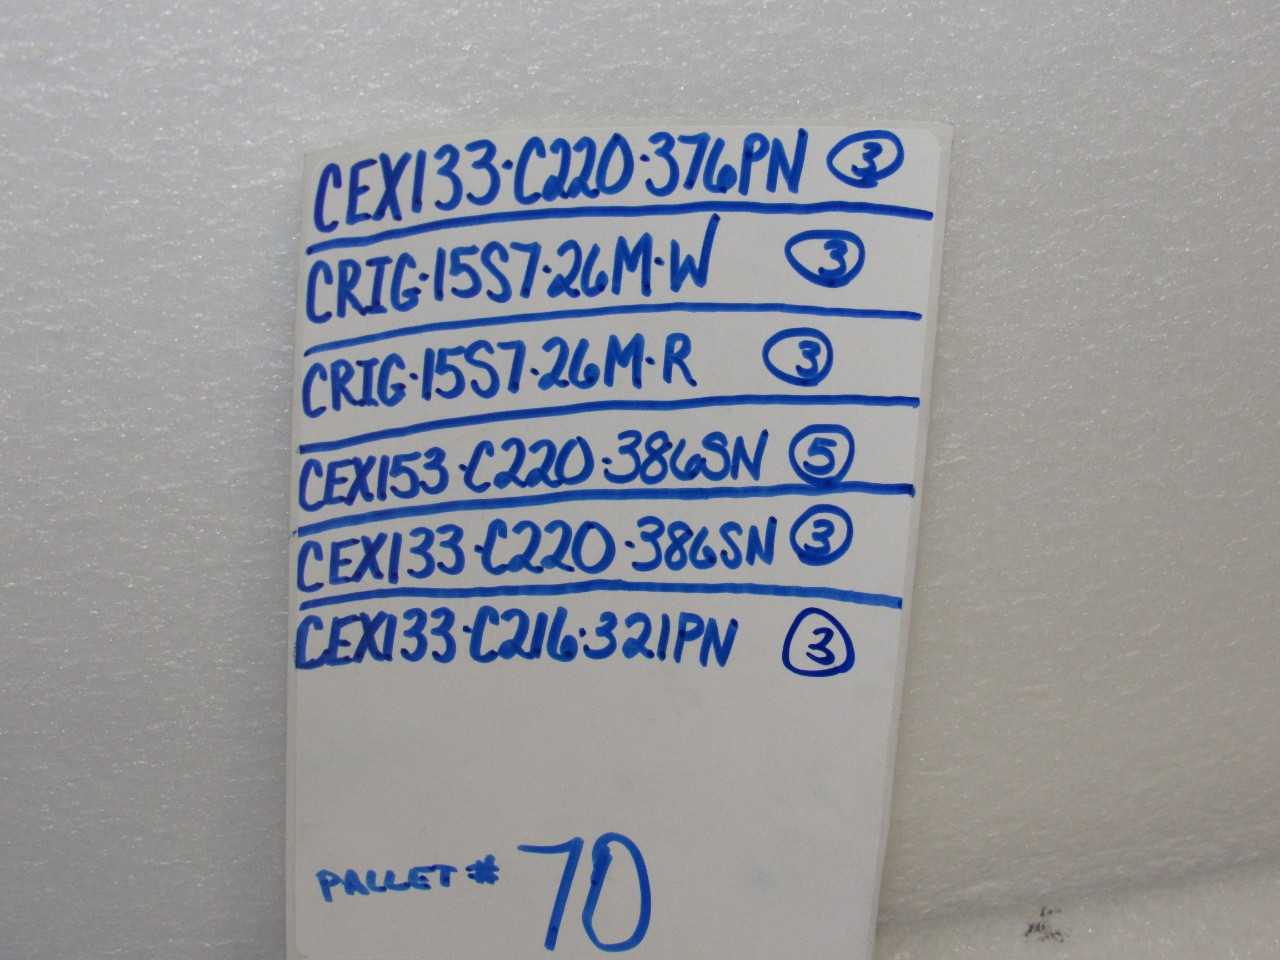 CEX133·C220·376PN 3
CRIG·15S7·26M·W 3
CRIG·15S7·26M·R 3
CEX153·C220·386SN 5
CEX133·C220·386SN 3
CEX133·C216·321PN 3
PALLET # 70